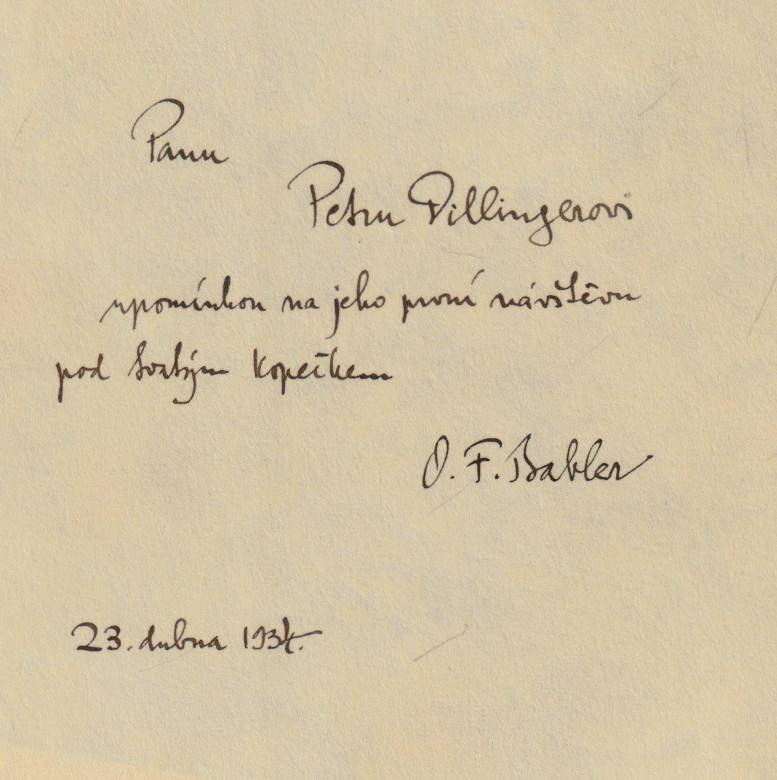 Panu
Petru Dillingerovi
upomínkou na jeho první návštěvu
pod Svatým Kopečkem
O. F. Babler
23. dubna 1934.